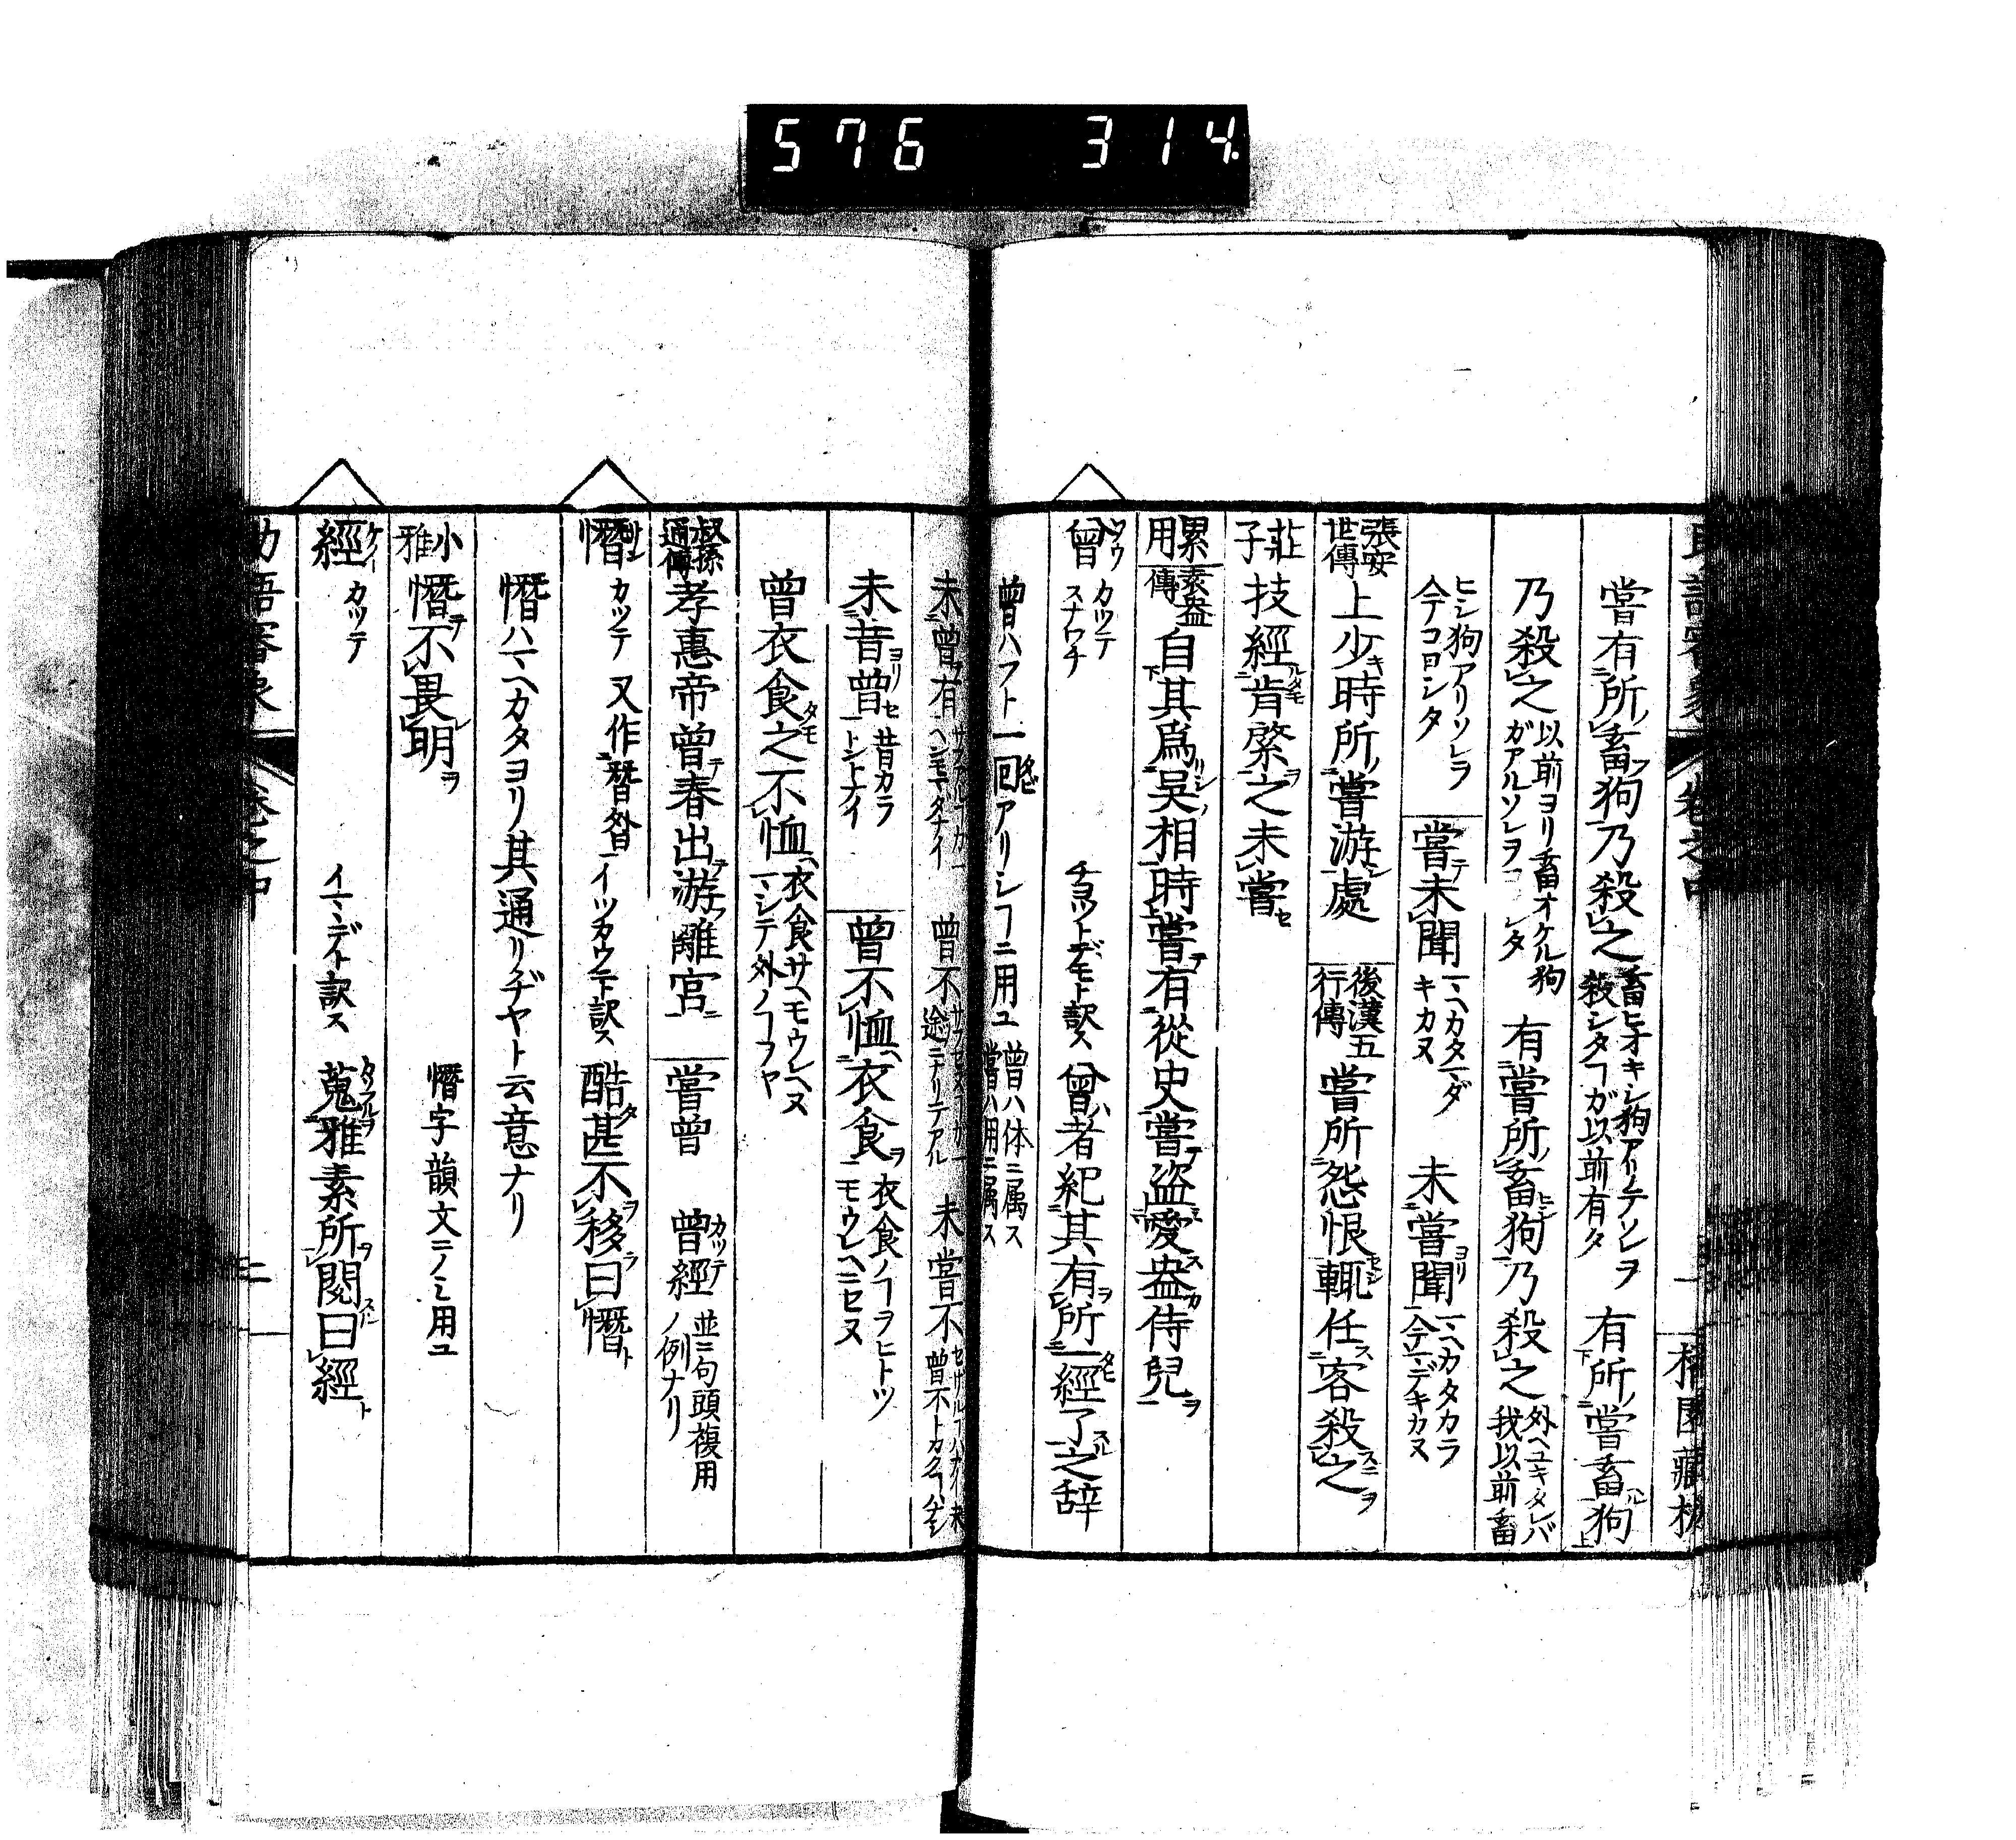 576 314
卷之中
嘗有所畜狗乃殺之 畜ヒオキシ狗アリテソレヲ殺シタヿガ以前有タ 有所嘗畜狗
乃殺之 以前ヨリ畜オケル狗ガアルソレヲコロシタ 有嘗所畜狗乃殺之 外ヘユキタレバ我以前畜
ヒシ狗アリソレヲ今コロシタ 嘗未聞 マヘカタマダキカヌ 未嘗聞 マヘカタカラ今マデキカヌ
張安世傳 上少時所嘗游處 後漢五行傳 嘗所怨恨輒任客殺之
莊子 技經肯綮之未嘗
累用 袁盎傳 自其爲吳相時嘗有從史嘗盜愛盎侍兒
曾 カツテ スナワチ チヨツトデモト訳ス 曾者紀其有所一經了之辞
曾ハフト一回アリシヿニ用ユ 曾ハ体ニ属ス嘗ハ用ニ属ス
未曾有 曾不 未嘗不
未昔曾 昔カラトントナイ 曾不恤衣食 衣食ノヿヲヒトツモウレヘニセヌ
曾衣食之不恤 衣食サヘモウレヘヌマシテ外ノヿヲヤ
叔孫通傳 孝惠帝曾春出游離宮 嘗曾 曾經 並ニ句頭複用ノ例ナリ
憯 カツテ 又作朁 イツカウニト訳ス 酷甚不移曰憯
憯ハマヘカタヨリ其通リヂヤト云意ナリ
小雅 憯不畏明 憯字韻文ニノミ用ユ
經 ケイ カツテ イマヽデト訳ス 蒐雅素所閱曰經
助語審象 卷之中 二